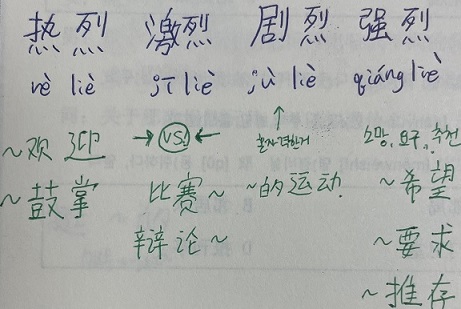 热烈 激烈 剧烈 强烈
rè liè jī liè jù liè qiáng liè
~欢迎 →VS!← ↑ 소망, 요구, 추천
~鼓掌 比赛~ ~的运动 ~希望
辩论~ ~要求
~推存